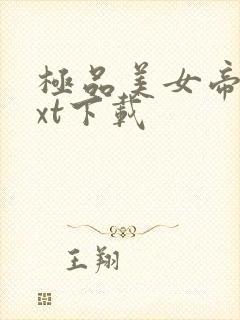 極品美女帝
xt下載
王翔